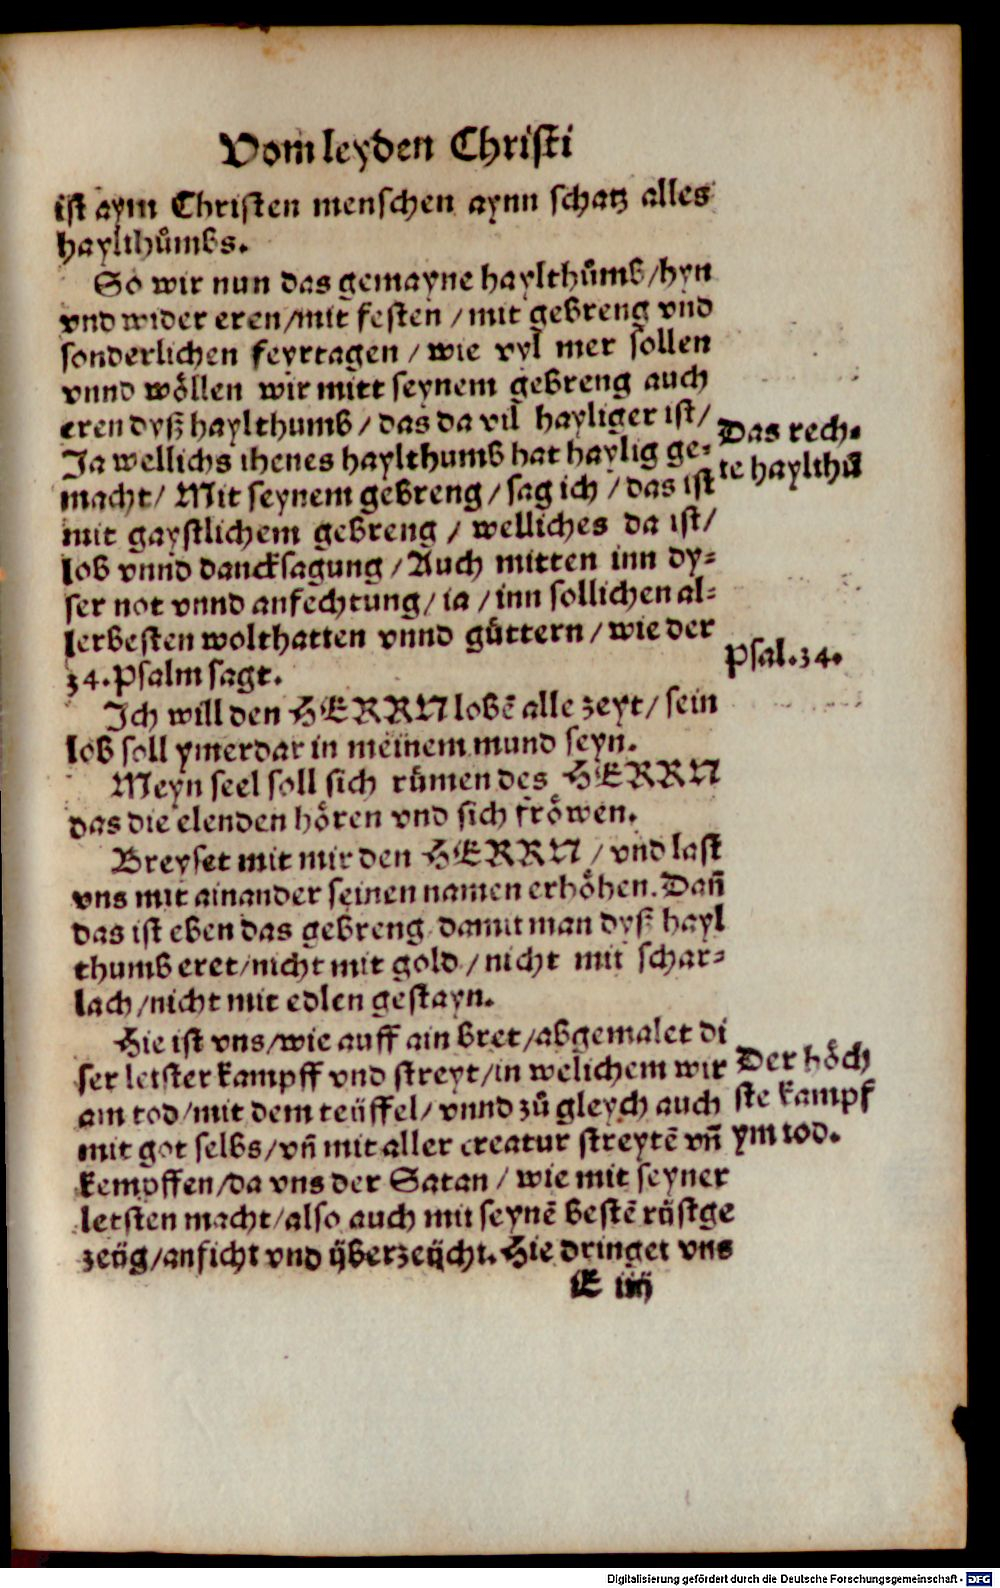 Vom leyden Christi
ist aym Christen menschen aynn schatz alles
haylthůmbs.
So wir nun das gemayne haylthůmb/hyn
vnd wider eren/mit festen / mit gebreng vnd
sonderlichen feyrtagen / wie vyl mer sollen
vnnd wöllen wir mitt seynem gebreng auch
eren dyß haylthumb / das da vil hayliger ist/
Ja wellichs ihenes haylthumb hat haylig ge⸗
macht/ Mit seynem gebreng / sag ich / das ist
mit gaystlichem gebreng / welliches da ist/
lob vnnd dancksagung / Auch mitten inn dy⸗
ser not vnnd anfechtung/ ia / inn sollichen al⸗
lerbesten wolthatten vnnd güttern / wie der
34. Psalm sagt.
Das rech⸗
te haylthū
Psal.34.
Ich will den HERRN lobē alle zeyt/ sein
lob soll ymerdar in meinem mund seyn.
Meyn seel soll sich růmen des HERRN
das die elenden hören vnd sich fröwen.
Breyset mit mir den HERRN / vnd last
vns mit ainander seinen namen erhöhen. Dañ
das ist eben das gebreng damit man dyß hayl
thumb eret/nicht mit gold / nicht mit schar⸗
lach /nicht mit edlen gestayn.
Hie ist vns/wie auff ain bret/abgemalet di
ser letster kampff vnd streyt/in welichem wir
am tod/mit dem teüffel/ vnnd zů gleych auch
mit got selbs/vñ mit aller creatur streytē vñ
kempffen/da vns der Satan / wie mit seyner
letsten macht/also auch mit seynē bestē rüstge
zeüg/anficht vnd überzeücht. Hie dringet vns
Der höch
ste kampf
ym tod.
E iiij
Digitalisierung gefördert durch die Deutsche Forschungsgemeinschaft - DFG